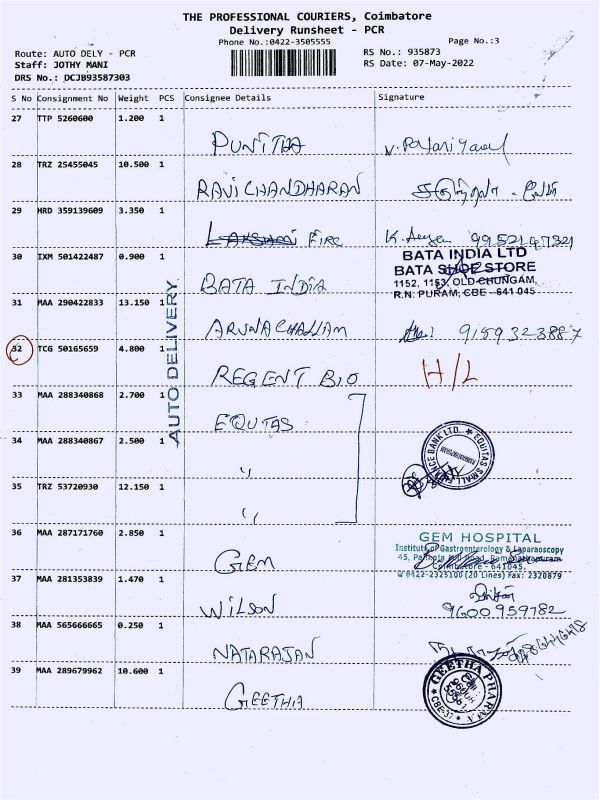 THE PROFESSIONAL COURIERS, Coimbatore
Delivery Runsheet - PCR
Phone No.:0422-3505555
Page No.:3
Route: AUTO DELY - PCR
RS No.: 935873
Staff: JOTHY MANI
RS Date: 07-May-2022
DRS No.: DCJB93587303
S No Consignment No Weight PCS Consignee Details Signature
27 TTP 5260600 1.200 1
PUNITHA
28 TRZ 25455045 10.500 1
RAVICHANDHARAN
29 HRD 359139609 3.350 1
FIRE K.
30 IXM 501422487 0.900 1
BATA INDIA
BATA INDIA LTD
BATA SHOE STORE
1152, 1153, OLD CHUNGAM,
R.N. PURAM, CBE - 641 045
31 MAA 290422833 13.150 1
ARUNACHALLAM 9159323887
AUTO DELIVERY
32 TCG 50165659 4.800 1
REGENT BIO H/L
33 MAA 288340868 2.700 1
EQUTAS
34 MAA 288340867 2.500 1
"
EQUITAS SMALL FINANCE BANK LTD.
35 TRZ 53720930 12.150 1
"
36 MAA 287171760 2.850 1
GEM
GEM HOSPITAL
Institute of Gastroenterology & Laparoscopy
45, Pankaja Mill Road, Ramanathapuram
Coimbatore - 641045.
0422-2325100 (20 Lines) Fax: 2320879
37 MAA 281353839 1.470 1
WILSON 9600959782
38 MAA 565666665 0.250 1
NATARAJAN
39 MAA 289679962 10.600 1
GEETHA
GEETHA PHARMA
CBE-37